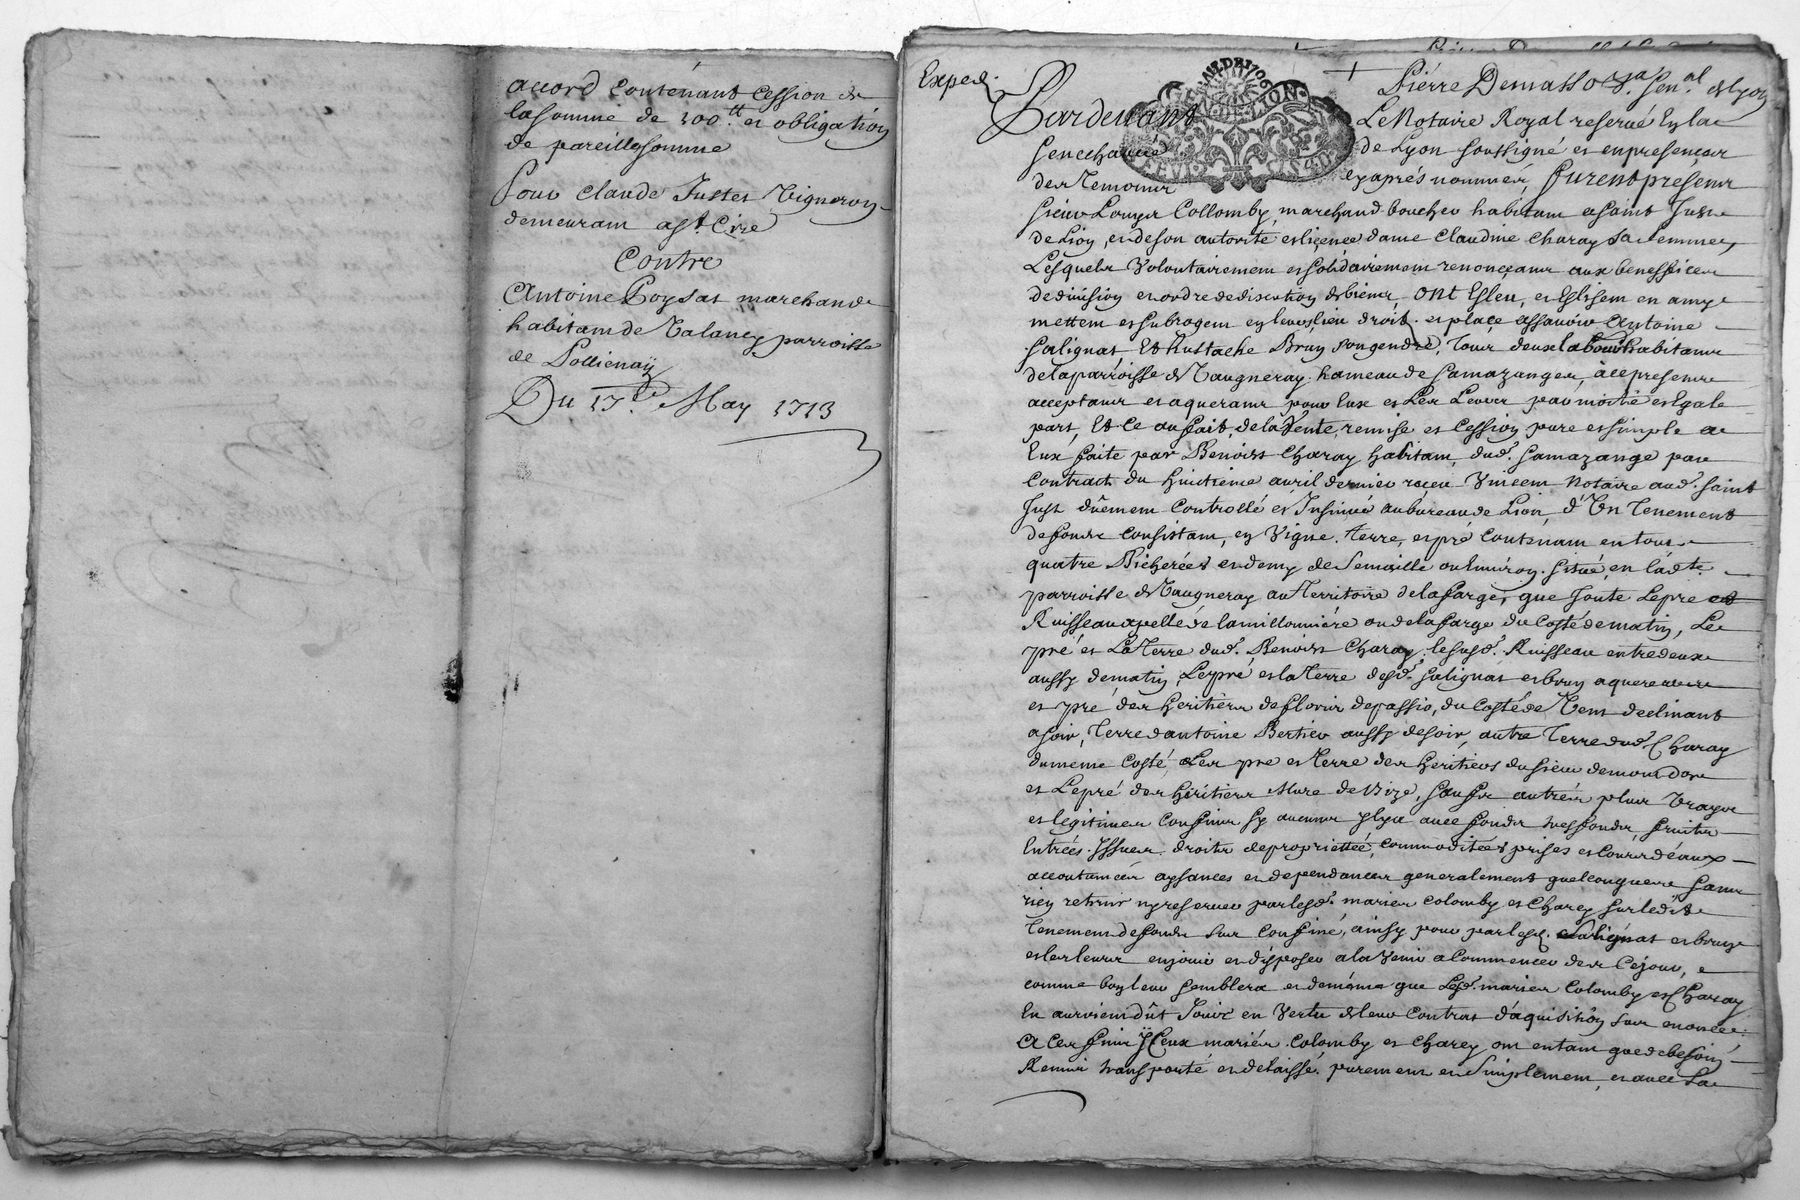 accord contenant Cession de
la somme de 300.tt et obligation
de pareille somme
Pour Claude Juttet Vigneron
demeurant a St. Cire
Contre
Antoine Poysat marchand
habitant de Valancy parroisse
de Pollienaÿ
Du 17.e May 1713
Exped.
Pierre Demasso
GEN. DE LYON
Pardevant Le Notaire Royal reservé En la
Senechaucée de Lyon soussigné et en presence
des Temoins cy aprés nommés, furent presents
Sieur Louys Collomby, marchand boucher habitant a saint Just
de Lion, et de son autorité et licence dame Claudine Charay sa femme,
Lesquels Volontairement et solidairement renonçants aux benefices
de division et ordre de discution de biens, ont Esleu, et Eslisent en amy
mettent et subrogent en leurs lieu droit et place assavoir Antoine
Salignat Et Eustache Brun son gendre, Tous deux laboureurs habitants
de la parroisse de Vaugneray hameau de Samazange, acepresents
acceptants et aquerants pour Eux et Les Leurs par moitié et Egale
part, Et ce au fait, de la Vente, remise et Cession pure et simple a
Eux faite par Benoist Charay habitant, dud. Samazange par
Contract du huitieme avril dernier receu Vincent Notaire aud. Saint
Just dûement Controllé et Insinué au bureau de Lion, d'Un Tenement
de fonds Consistant, en Vigne, terre, et pré Contenant en tous
quatre Bicherées et demy de Semaille ou Environ, Situé, en lad.te
parroisse de Vaugneray au Territoire de la farge, que Joute Le pré
Ruisseau apellé de la millonniére ou de la farge du Costé de matin, Le
pré et La Terre dud. Benoist Charay, le susd. Ruisseau entredeux
aussy de matin, Le pré et la terre desd. Salignat et brun aquereurs
et pré des héritiers de flovir depassio, du Costé de Vent declinant
a soir, Terre d'antoine Bertier aussy de soir, autre Terre dud. Charay
du meme Costé, Les pré et Terre des heritiers du sieur demontdor
et Le pré des héritiers Mure de Vize, sauf autres plus Vrays
et légitimes Confins sy aucuns y a avec fonds tresfonds, fruits
Entrées, Issues droits de proprietté, Commoditées prises et Cours d'eaux
accoutumées aysances et dependances generalement quelconques sans
rien retenir ny reserver par lesd. mariés Colomby et Charey sur ledit
Tenement de fonds sus Confiné, ainsy pour par lesd. Salignat et brun
et les leurs en jouir et disposer a la Venir a Commencer des Cejour,
comme bon leur semblera et de meme que Lesd. mariés Colomby et Charay
En auroient dût Jouir en Vertu de leur Contrat d'aquisition sus enoncé
A Ces fins YCeux mariés Colomby et Charey ont en tant que de besoin
Remis transporté et delaissé purement et Simplement, et avec La